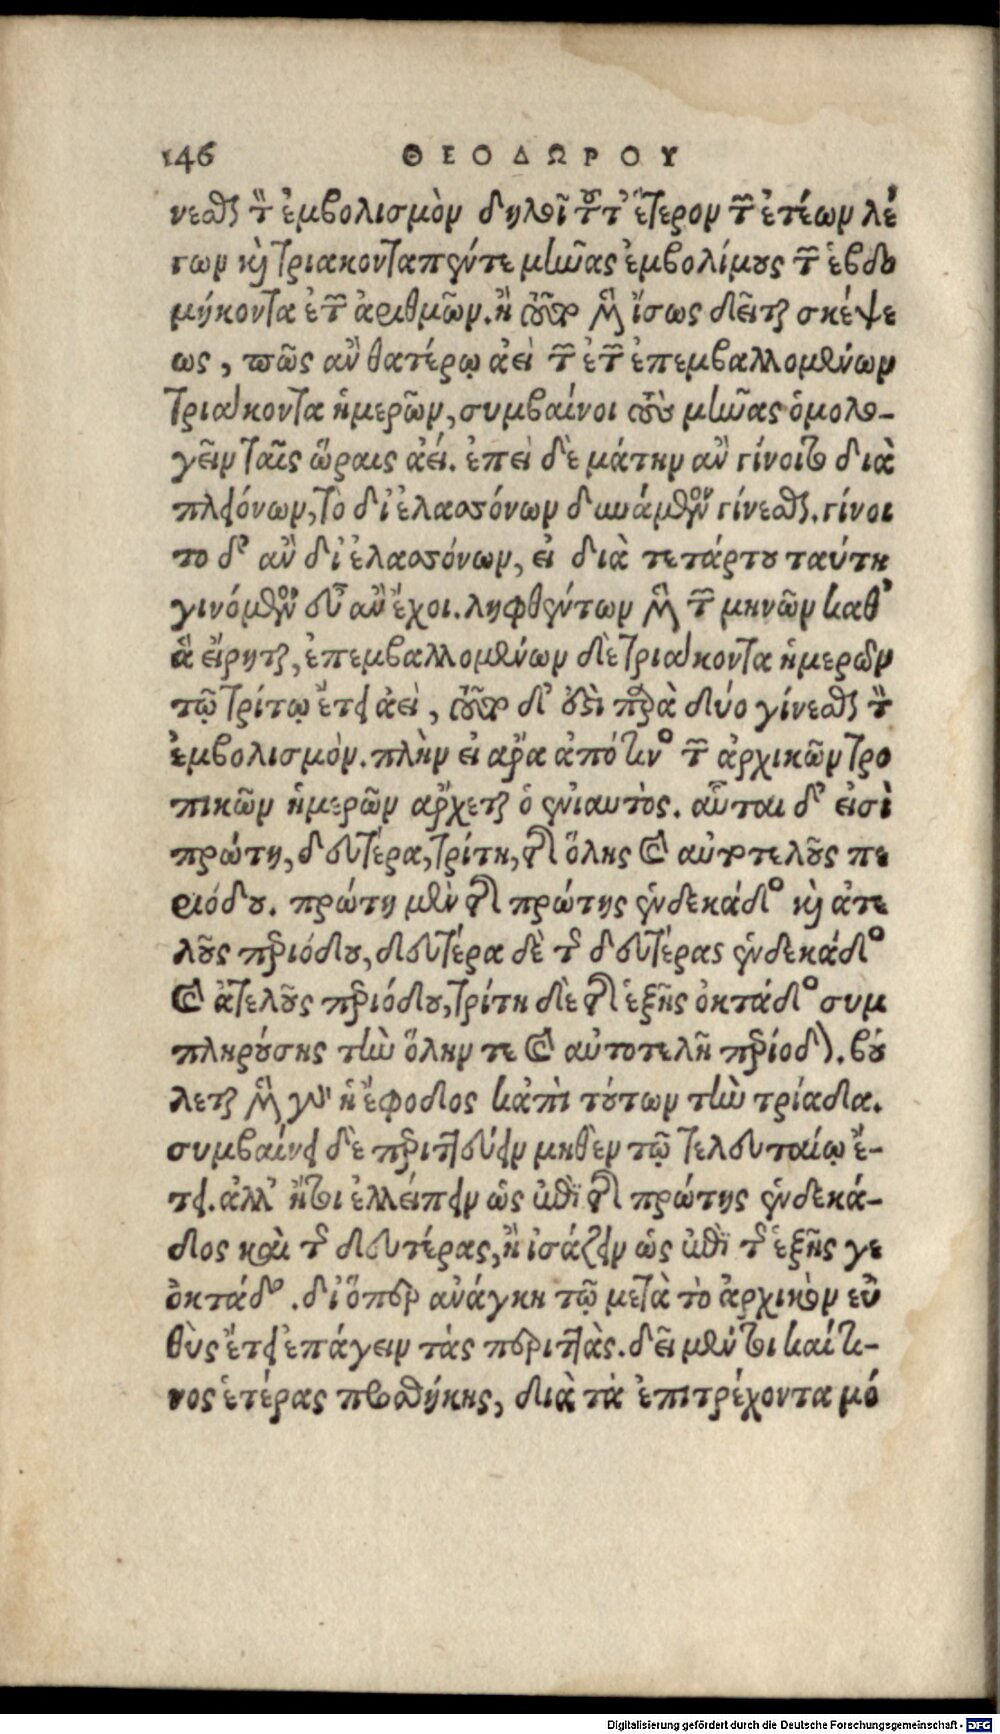 146 ΘΕΟΔΩΡΟΥ
νεσθαι τὸν ἐμβολισμὸν δηλοῖ τοῦτ' ἕτερον τῶν ἐτέων λέ
γων καὶ τριακονταπέντε μῆνας ἐμβολίμους τῶν ἑβδο
μήκοντα ἐτῶν ἀριθμῶν. ἢ οὖν καὶ ἴσως δεῖται σκέψε
ως, πῶς ἂν θατέρῳ ἀεὶ τῶν ἐτῶν ἐπεμβαλλομένων
τριάκοντα ἡμερῶν, συμβαίνοι τοὺς μῆνας ὁμολο-
γεῖν ταῖς ὥραις ἀεί. ἐπεὶ δὲ μάτην ἂν γίνοιτο διὰ
πλειόνων, τὸ δι' ἐλασσόνων δυνάμενον γίνεσθαι. γίνοι
το δ' ἂν δι' ἐλασσόνων, εἰ διὰ τετάρτου ταύτῃ
γινόμενον εὖ ἂν ἔχοι. ληφθέντων τῶν μηνῶν καθ'
ἃ εἴρηται, ἐπεμβαλλομένων δὲ τριάκοντα ἡμερῶν
τῷ τρίτῳ ἔτει ἀεὶ, δύο γίνεσθαι τὸν
ἐμβολισμόν. πλὴν εἰ ἄρα ἀπό τινος τῶν ἀρχικῶν τρο
πικῶν ἡμερῶν ἄρχεται ὁ ἐνιαυτὸς. αὗται δ' εἰσὶ
πρώτη, δευτέρα, τρίτη, τῆς ὅλης καὶ αὐτοτελοῦς πε
ριόδου. πρώτη μὲν τῆς πρώτης ἑνδεκάδος καὶ ἀτε
λοῦς περιόδου, δευτέρα δὲ τῆς δευτέρας ἑνδεκάδος
καὶ ἀτελοῦς περιόδου, τρίτη δὲ τῆς ἑξῆς ὀκτάδος συμ
πληρούσης τὴν ὅλην τε καὶ αὐτοτελῆ περίοδον. βού
λεται ἡ ἔφοδος κἀπὶ τούτων τὴν τρίαδα.
συμβαίνει δὲ περιττεύειν μηθὲν τῷ τελευταίῳ ἔ-
τει. ἀλλ' ἤτοι ἐλλείπειν ὡς ἐπὶ τῆς πρώτης ἑνδεκά-
δος καὶ τῆς δευτέρας, ἢ ἰσάζειν ὡς ἐπὶ τῆς ἑξῆς γε
ὀκτάδος. διόπερ ἀνάγκη τῷ μετὰ τὸ ἀρχικὸν εὐ
θὺς ἔτει ἐπάγειν τὰς περιττὰς. δεῖ μέντοι καί τι-
νος ἑτέρας προσθήκης, διὰ τὰ ἐπιτρέχοντα μό
Digitalisierung gefördert durch die Deutsche Forschungsgemeinschaft - DFG